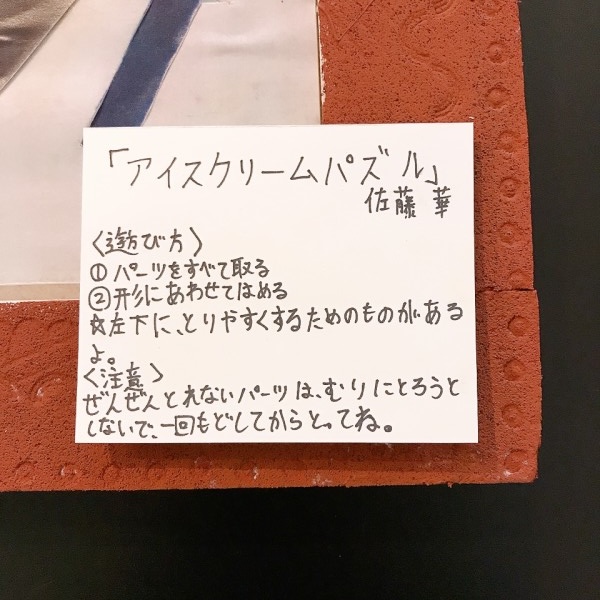 「アイスクリームパズル」
佐藤 華
〈遊び方〉
① パーツをすべて取る
② 形にあわせてはめる
☆左下に、とりやすくするためのものがある
よ。
〈注意〉
ぜんぜんとれないパーツは、むりにとろうと
しないで、一回もどしてからとってね。